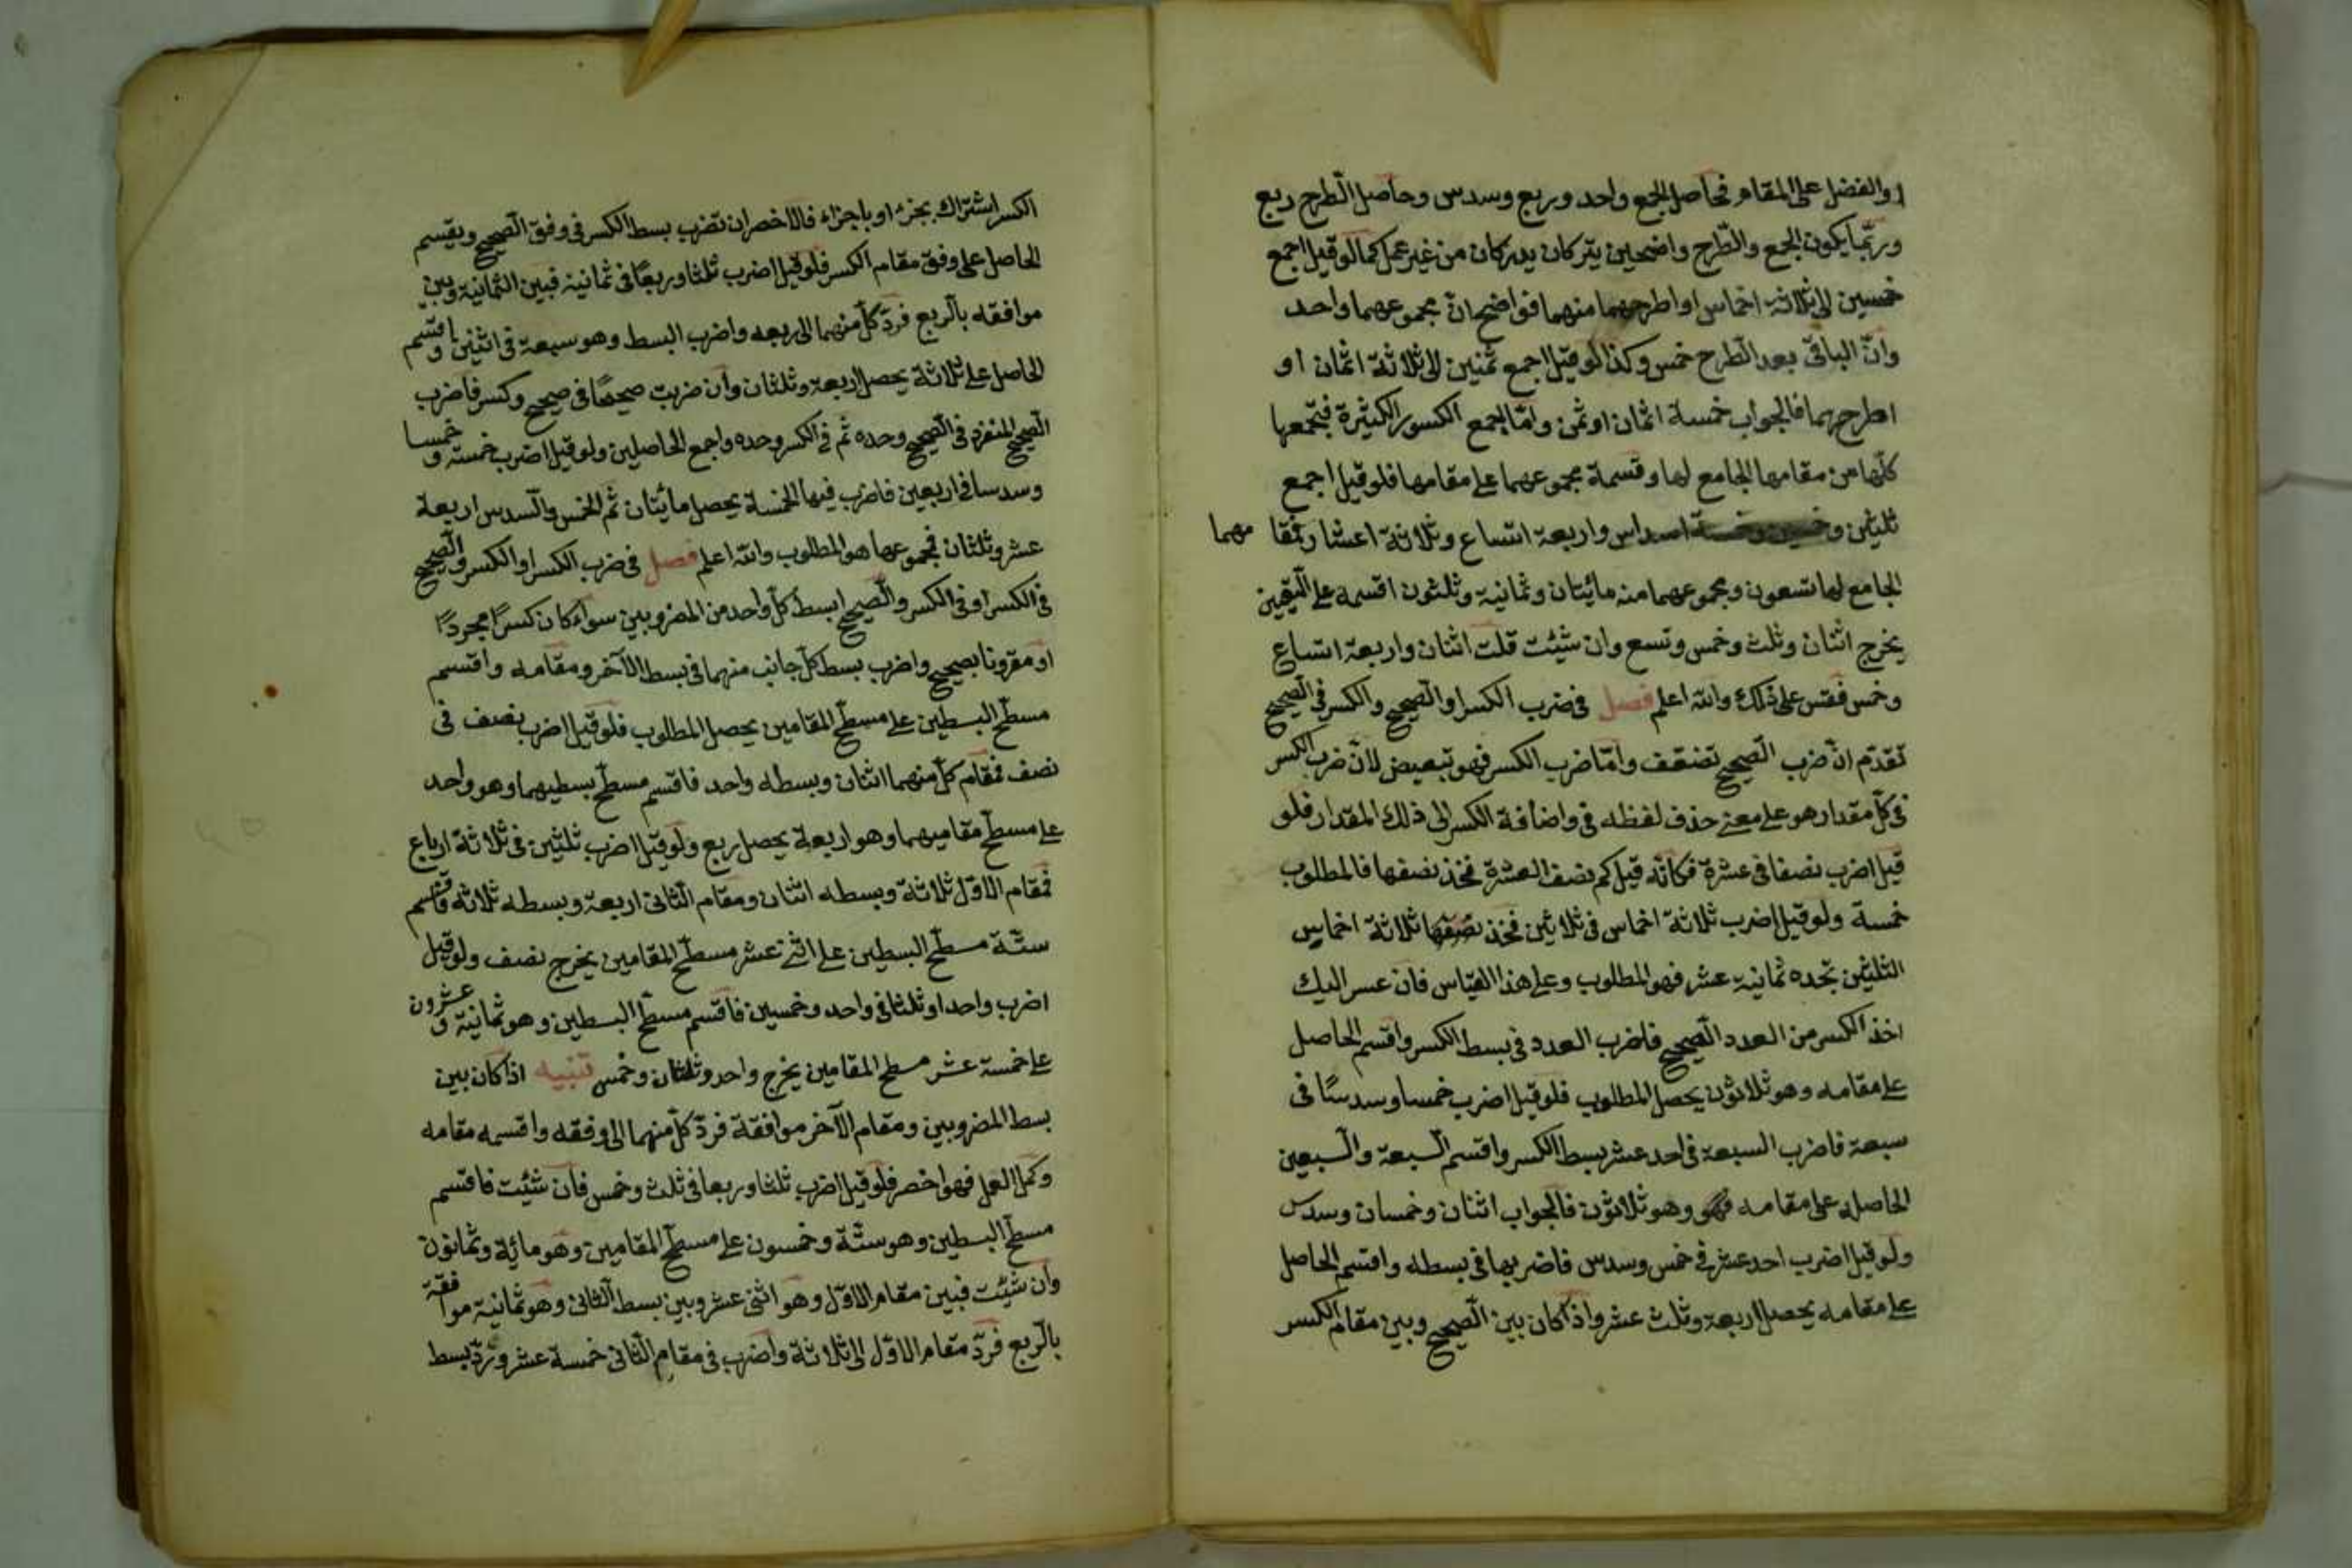 او الفضل على المقام فحاصل الجمع واحد وربع وسدس وحاصل الطرح ربع
وربّما يكون الجمع والطّرح واضحين يتركان يدركان من غير عمل كما لو قيل اجمع
خمسين الى ثلاثة اخماس او اطرحهما منهما فواضح انّ مجموعهما واحد
وانّ الباقى بعد الطّرح خمس وكذا لو قيل اجمع ثمنين الى ثلاثة اثمان او
اطرحهما فالجواب خمسة اثمان او ثمن وامّا لجمع الكسور الكثيرة فبجمعها
كلّها من مقامها الجامع لها وقسمة مجموعهما على مقامها فلو قيل اجمع
ثلثين و اسداس واربعة اتساع وثلاثة اعشار فمقا مهما
الجامع لها تسعون ومجموعهما منه مائتان وثمانية وثلثون اقسمه على التّسعين
يخرج اثنان وثلث وخمس وتسع وان شئت قلت اثنان واربعة اتساع
وخمس فقس على ذلك والله اعلم فصل فى ضرب الكسر او الصّحيح والكسر فى الصّحيح
تقدّم انّ ضرب الصّحيح تضعيف وامّا ضرب الكسر فهو تبعيض لانّ ضرب الكسر
فى كلّ مقدار هو على معنى حذف لفظه فى واضافة الكسر الى ذلك المقدار فلو
قيل اضرب نصفا فى عشرة فكانّه قيل كم نصف العشرة فخذ نصفها فالمطلوب
خمسة ولو قيل اضرب ثلاثة اخماس فى ثلاثين فخذ نصفها ثلاثة اخماس
الثلثين تجده ثمانية عشر فهو المطلوب وعلى هذا القياس فان عسر اليك
اخذ الكسر من العدد الصّحيح فاضرب العدد فى بسط الكسر واقسم الحاصل
على مقامه وهو ثلاثون يحصل المطلوب فلو قيل اضرب خمسا وسدسًا فى
سبعة فاضرب السبعة فى احد عشر بسط الكسر واقسم السّبعة والسّبعين
الحاصل على مقامه فهو وهو ثلاثون فالجواب اثنان وخمسان وسدس
ولو قيل اضرب احد عشر فى خمس وسدس فاضربها فى بسطه واقسم الحاصل
على مقامه يحصل اربعة وثلث عشر واذا كان بين الصّحيح وبين مقام الكسر
الكسر اشتراك بجزء او باجزاء فالاخصر ان تضرب بسط الكسر فى وفق الصّحيح ويقسم
الحاصل على وفق مقام الكسر فلو قيل اضرب ثلثا وربعًا فى ثمانية فبين الثمانية وبين
موافقه بالرّبع فردّ كلّ منهما الى ربعه واضرب البسط وهو سبعة فى اثنين واقسم
الحاصل على ثلاثة يحصل اربعة وثلثان وان ضربت صحيحًا فى صحيح وكسر فاضرب
الصّحيح المنفرد فى الصّحيح وحده ثم فى الكسر وحده واجمع الحاصلين ولو قيل اضرب خمسة وخمسا
وسدسا فى اربعين فاضرب فيها الخمسة يحصل مائتان ثم الخمس والسّدس اربعة
عشر وثلثان فمجموعها هو المطلوب والله اعلم فصل فى ضرب الكسر او الكسر والصّحيح
فى الكسر او فى الكسر والصّحيح ابسط كلّ واحد من المضروبين سواء كان كسرًا مجردًا
او مقرونا بصحيح واضرب بسط كلّ جانب منهما فى بسط الآخر ومقامه واقسم
مسطّح البسطين على مسطّح المقامين يحصل المطلوب فلو قيل اضرب نصف فى
نصف فمقام كلّ منهما اثنان وبسطه واحد فاقسم مسطّح بسطيهما وهو واحد
على مسطّح مقاميهما وهو اربعة يحصل ربع ولو قيل اضرب ثلثين فى ثلاثة ارباع
فمقام الاوّل ثلاثة وبسطه اثنان ومقام الثانى اربعة وبسطه ثلاثة فاقسم
ستّة مسطّح البسطين على اثنى عشر مسطّح المقامين يخرج نصف ولو قيل
اضرب واحدا وثلثا فى واحد وخمسين فاقسم مسطّح البسطين وهو ثمانية وعشرون
على خمسة عشر مسطح المقامين يخرج واحد وثلثان وخمس تنبيه اذا كان بين
بسط المضروبين ومقام الآخر موافقة فردّ كلّ منهما الى وفقه واقسمه مقامه
وكمل العمل فهو اخصر فلو قيل اضرب ثلثا وربعا فى ثلث وخمس فان شئت فاقسم
مسطّح البسطين وهو ستّة وخمسون على مسطّح المقامين وهو مائة وثمانون
وان شئت فبين مقام الاوّل وهو اثنى عشر وبين بسط الثانى وهو ثمانية موافقة
بالرّبع فردّ مقام الاوّل الى ثلاثة واضرب فى مقام الثانى خمسة عشر وردّ بسط